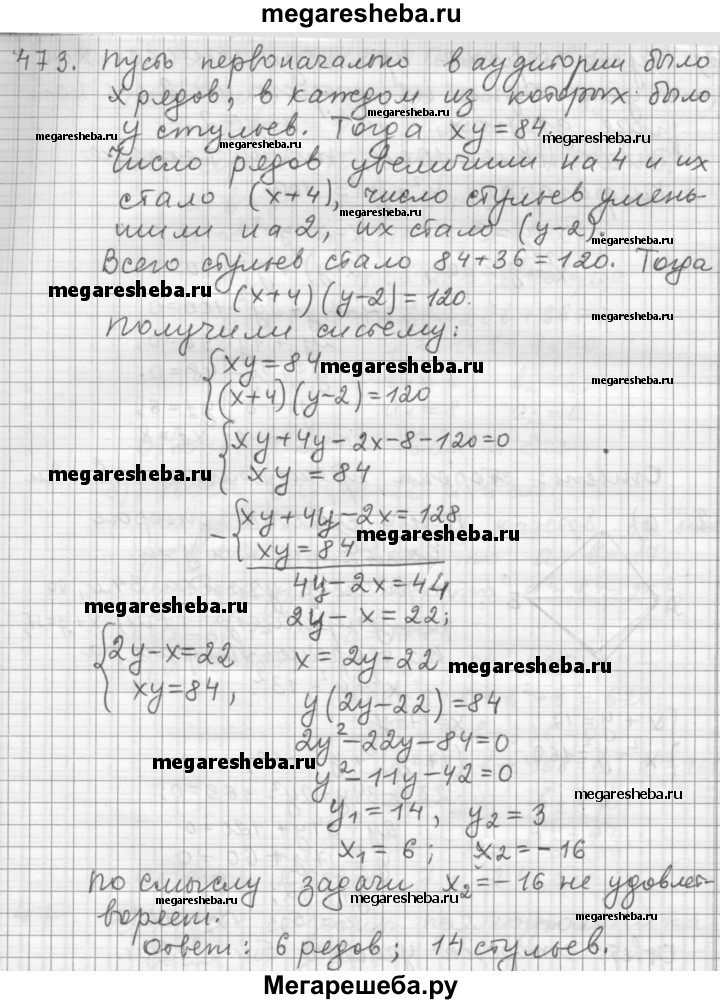 megaresheba.ru
473. Пусть первоначально в аудитории было
x рядов, в каждом из которых было
megaresheba.ru
y стульев. Тогда xy = 84.
megaresheba.ru
megaresheba.ru
megaresheba.ru
Число рядов увеличили на 4 и их
стало (x+4), число стульев умень-
megaresheba.ru
шили на 2, их стало (y-2).
Всего стульев стало 84+36=120. Тогда
megaresheba.ru
(x+4)(y-2)=120.
megaresheba.ru
Получили систему:
{ xy=84
megaresheba.ru
(x+4)(y-2)=120
megaresheba.ru
{ xy+4y-2x-8-120=0
xy = 84
megaresheba.ru
- { xy+4y-2x=128
xy=84
megaresheba.ru
4y-2x=44
megaresheba.ru
2y-x=22;
{ 2y-x=22
xy=84,
x=2y-22
megaresheba.ru
y(2y-22)=84
2y²-22y-84=0
megaresheba.ru
y²-11y-42=0
megaresheba.ru
y₁=14, y₂=3
x₁=6; x₂=-16
По смыслу задачи x₂=-16 не удовлет-
megaresheba.ru
воряет.
megaresheba.ru
Ответ: 6 рядов; 14 стульев.
Мегарешеба.ру